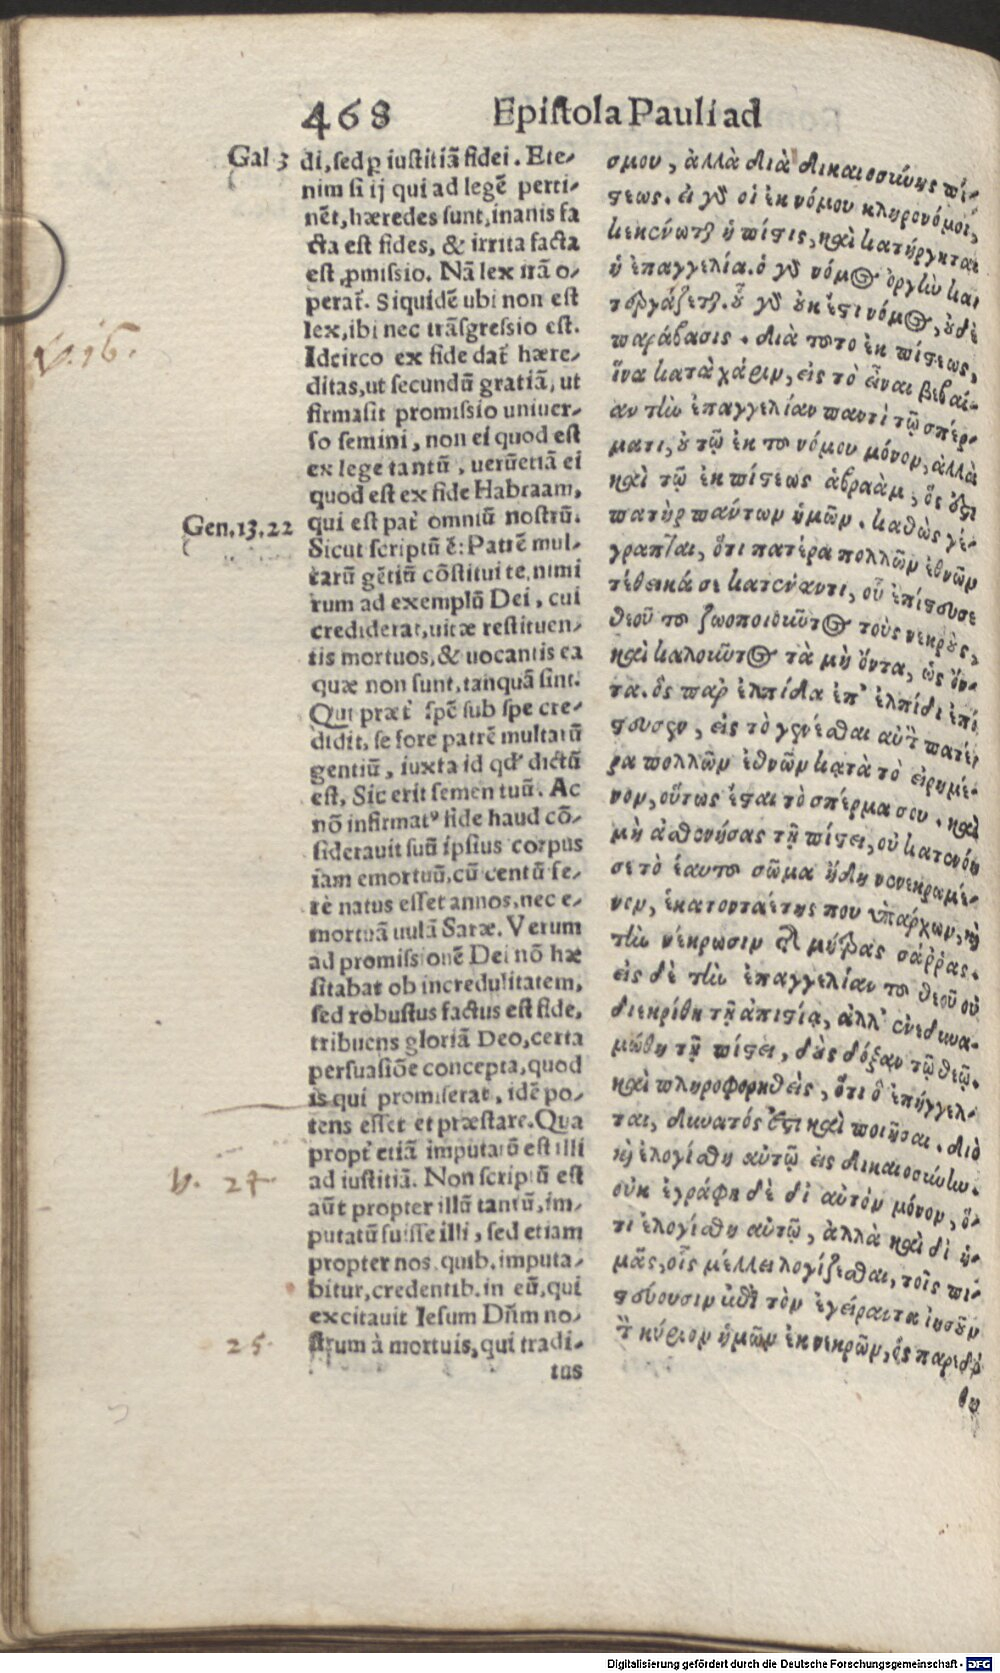 468 Epistola Pauli ad
Gal 3
di, sed ꝑ iustitiã fidei. Ete⸗
nim si ij qui ad legẽ perti⸗
nẽt, hæredes sunt, inanis fa
cta est fides, & irrita facta
est ꝓmissio. Nã lex irã o⸗
perat̃. Siquidẽ ubi non est
lex, ibi nec trãsgressio est.
Idcirco ex fide dat̃ hære⸗
ditas, ut secundũ gratiã, ut
firma sit promissio uniuer⸗
so semini, non ei quod est
ex lege tantũ, uerũetiã ei
quod est ex fide Habraam,
Gen.13.22
qui est pat̃ omniũ nostrũ.
Sicut scriptũ ẽ: Patrẽ mul⸗
tarũ gẽtiũ cõstitui te, nimi
rum ad exemplũ Dei, cui
crediderat, uitæ restituen⸗
tis mortuos, & uocantis ea
quæ non sunt, tanquã sint.
Qui præt̃ spẽ sub spe cre⸗
didit, se fore patrẽ multarũ
gentiũ, iuxta id qd' dictũ
est, Sic erit semen tuũ. Ac
nõ infirmatꝰ fide haud cõ⸗
siderauit suũ ipsius corpus
iam emortuũ, cũ centũ fe⸗
rè natus esset annos, nec e⸗
mortuã uuluã Saræ. Verum
ad promissionẽ Dei nõ hæ
sitabat ob incredulitatem,
sed robustus factus est fide,
tribuens gloriã Deo, certa
persuasiõe concepta, quod
is qui promiserat, idẽ po⸗
tens esset et præstare. Qua
propt̃ etiã imputatũ est illi
ad iustitiã. Non scriptũ est
aũt propter illũ tantũ, im⸗
putatũ fuisse illi, sed etiam
propter nos, quib. imputa⸗
bitur, credentib. in eũ, qui
excitauit Iesum Dñm no⸗
strum à mortuis, qui tradi⸗
tus
σμου, ἀλλὰ διὰ δικαιοσύνης πί⸗
στεως. εἰ γὰρ οἱ ἐκ νόμου κληρονόμοι,
κεκένωται ἡ πίστις, καὶ κατήργηται
ἡ ἐπαγγελία. ὁ γὰρ νόμος ὀργὴν κατ
εργάζεται. οὗ γὰρ οὐκ ἔστι νόμος, οὐδὲ
παράβασις. διὰ τοῦτο ἐκ πίστεως,
ἵνα κατὰ χάριν, εἰς τὸ εἶναι βεβαί⸗
αν τὴν ἐπαγγελίαν παντὶ τῷ σπέρ⸗
ματι, οὐ τῷ ἐκ τοῦ νόμου μόνον, ἀλλὰ
καὶ τῷ ἐκ πίστεως ἀβραὰμ, ὅς ἐστι
πατὴρ πάντων ἡμῶν. καθὼς γέ⸗
γραπται, ὅτι πατέρα πολλῶν ἐθνῶν
τέθεικά σε κατέναντι, οὗ ἐπίστευσε
θεοῦ τοῦ ζωοποιοῦντος τοὺς νεκροὺς,
καὶ καλοῦντος τὰ μὴ ὄντα, ὡς ὄν⸗
τα. ὃς παρ ἐλπίδα ἐπ' ἐλπίδι ἐπί
στευσεν, εἰς τὸ γενέσθαι αὐτὸν πατέ⸗
ρα πολλῶν ἐθνῶν κατὰ τὸ εἰρημέ⸗
νον, οὕτως ἔσται τὸ σπέρμα σου. καὶ
μὴ ἀσθενήσας τῇ πίστει, οὐ κατενόη
σε τὸ ἑαυτοῦ σῶμα ἤδη νενεκρωμέ⸗
νον, ἑκατονταέτης που ὑπάρχων, καὶ
τὴν νέκρωσιν τῆς μήτρας σάῤῥας.
εἰς δὲ τὴν ἐπαγγελίαν τοῦ θεοῦ οὐ
διεκρίθη τῇ ἀπιστίᾳ, ἀλλ' ἐνεδυνα⸗
μώθη τῇ πίστει, δοὺς δόξαν τῷ θεῷ.
καὶ πληροφορηθεὶς, ὅτι ὃ ἐπήγγελ⸗
ται, δυνατός ἐστι καὶ ποιῆσαι. διὸ
καὶ ἐλογίσθη αὐτῷ εἰς δικαιοσύνην.
οὐκ ἐγράφη δὲ δι αὐτὸν μόνον, ὅ⸗
τι ἐλογίσθη αὐτῷ, ἀλλὰ καὶ δι ἡ⸗
μᾶς, οἷς μέλλει λογίζεσθαι, τοῖς πι⸗
στεύουσιν ἐπὶ τὸν ἐγείραντα ἰησοῦν
τὸν κύριον ἡμῶν ἐκ νεκρῶν, ὃς παρεδό
θη
V. 16.
V. 24
25.
Digitalisierung gefördert durch die Deutsche Forschungsgemeinschaft - DFG